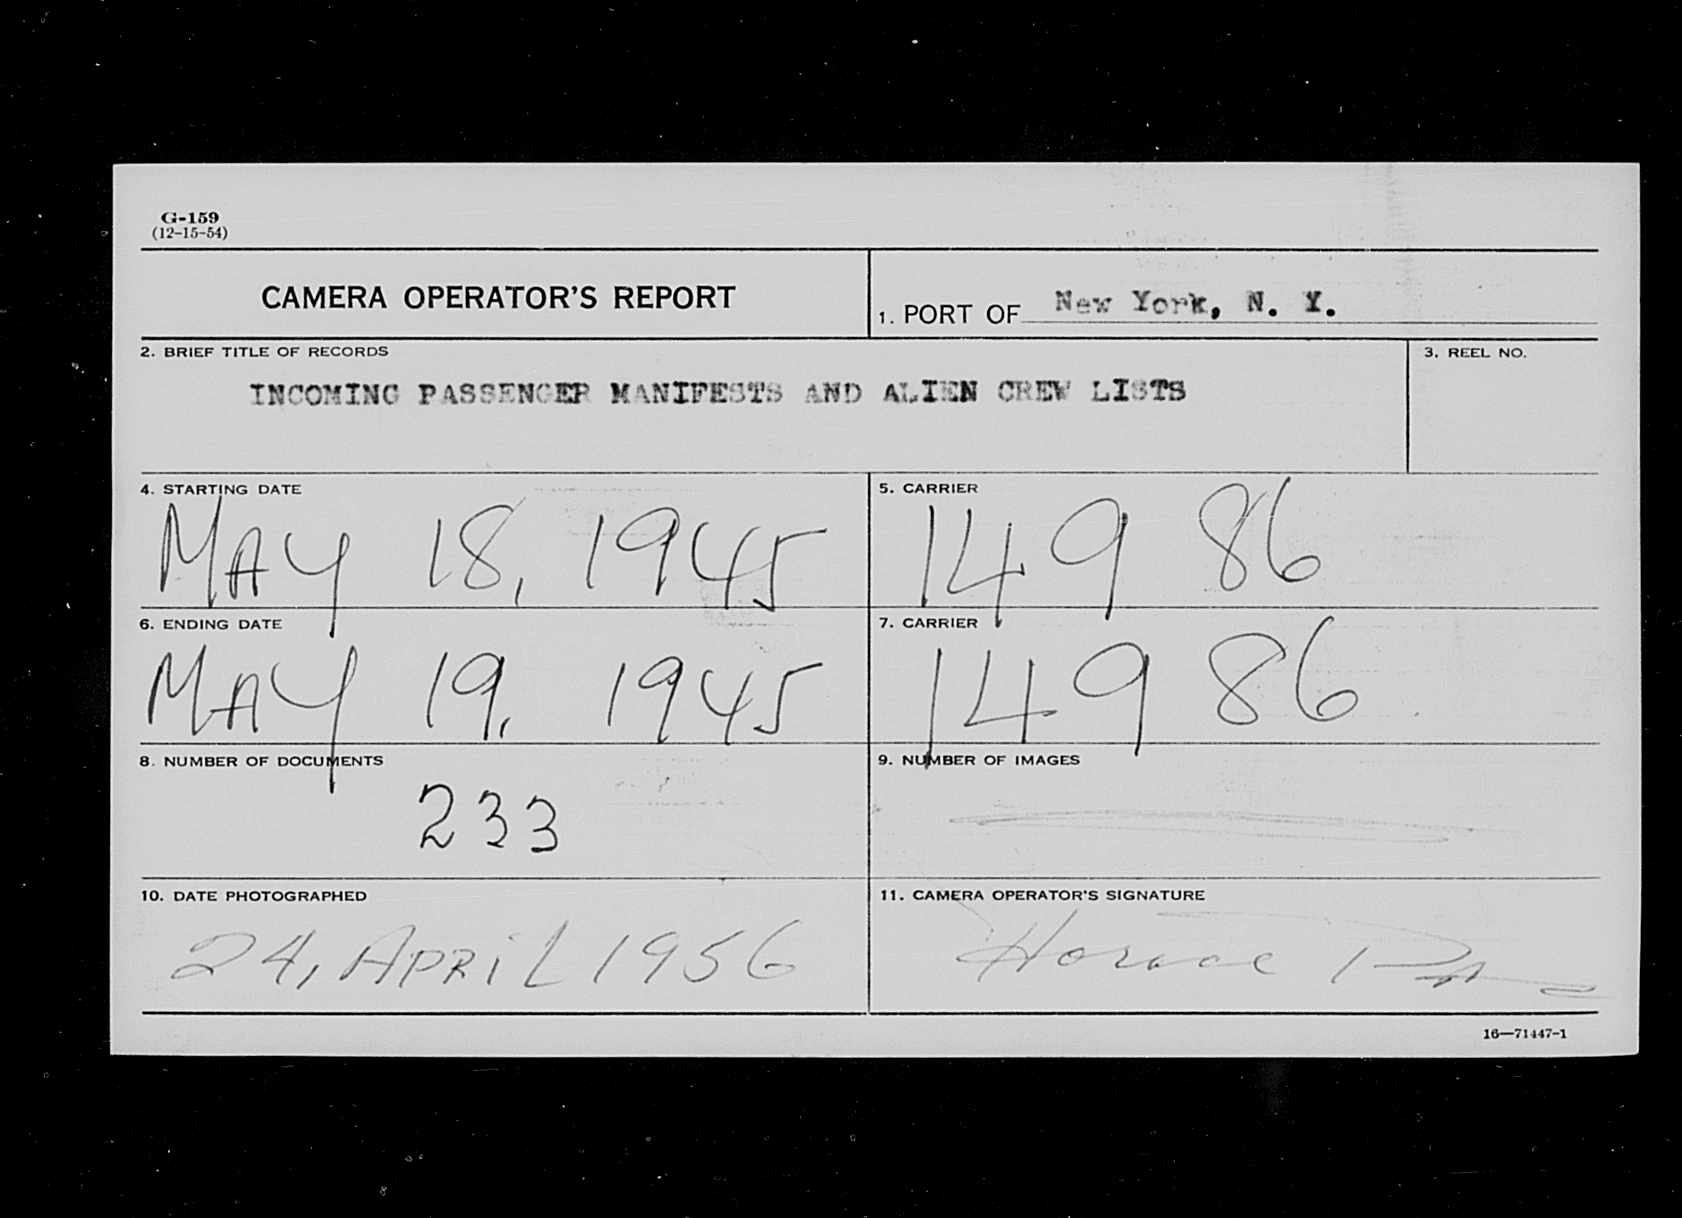 G-159
(12-15-54)
CAMERA OPERATOR'S REPORT
1. PORT OF New York, N. Y.
2. BRIEF TITLE OF RECORDS
3. REEL NO.
INCOMING PASSENGER MANIFESTS AND ALIEN CREW LISTS
4. STARTING DATE
5. CARRIER
MAY 18, 1945
149 86
6. ENDING DATE
7. CARRIER
MAY 19, 1945
149 86
8. NUMBER OF DOCUMENTS
9. NUMBER OF IMAGES
233
10. DATE PHOTOGRAPHED
11. CAMERA OPERATOR'S SIGNATURE
24, APRIL 1956
Horace
16—71447-1